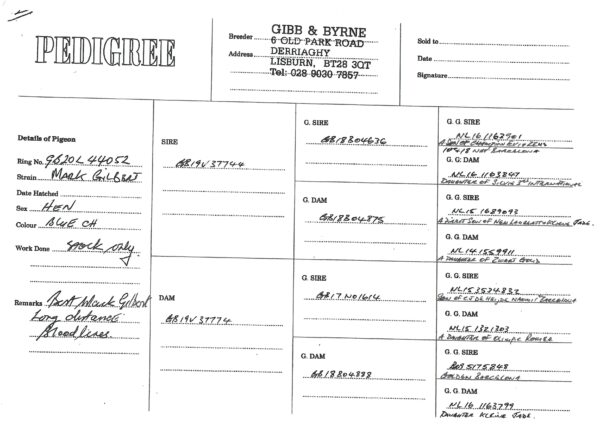 PEDIGREE
Breeder
GIBB & BYRNE
6 OLD PARK ROAD
Address
DERRIAGHY
LISBURN, BT28 3QT
Tel: 028 9030 7857
Sold to
Date
Signature
Details of Pigeon
Ring No. GB20L 44052
Strain MARK GILBERT
Date Hatched
Sex HEN
Colour BLUE CH
Work Done STOCK ONLY
Remarks Best Mark Gilbert
Long distance
Bloodlines.
SIRE
GB19V 37744
DAM
GB19V 37774
G. SIRE
GB18B04636
G. DAM
GB18B04875
G. SIRE
GB17 N01614
G. DAM
GB18B04898
G. G. SIRE
NL16 1163901
A SON OF CHAMPION
BARCELONA
G. G. DAM
NL16 1163847
DAUGHTER OF INTERNATIONAL
G. G. SIRE
NL15 1689093
A DIRECT SON OF NEW LAUREAAT KLEINE JADE.
G. G. DAM
NL14 1559911
A DAUGHTER OF ZWART GOUD
G. G. SIRE
NL15 3524832
SON OF BARCELONA
G. G. DAM
NL15 1321303
A DAUGHTER OF OLIMPIC
G. G. SIRE
5175848
GOLDEN BARCELONA
G. G. DAM
NL16 1163799
DAUGHTER KLEINE JADE.